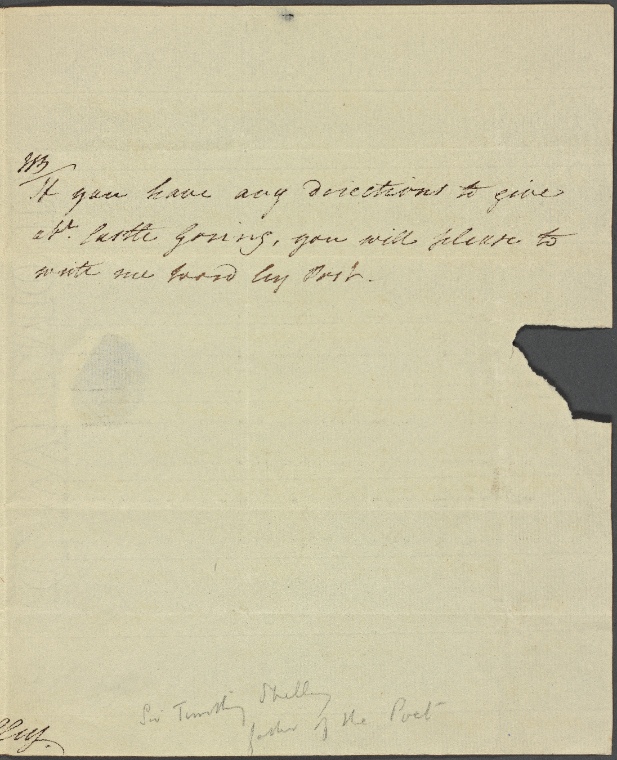 NB
If you have any directions to give
at Castle Goring, you will please to
write me word by Post.
Sir Timothy Shelley
father of the Poet